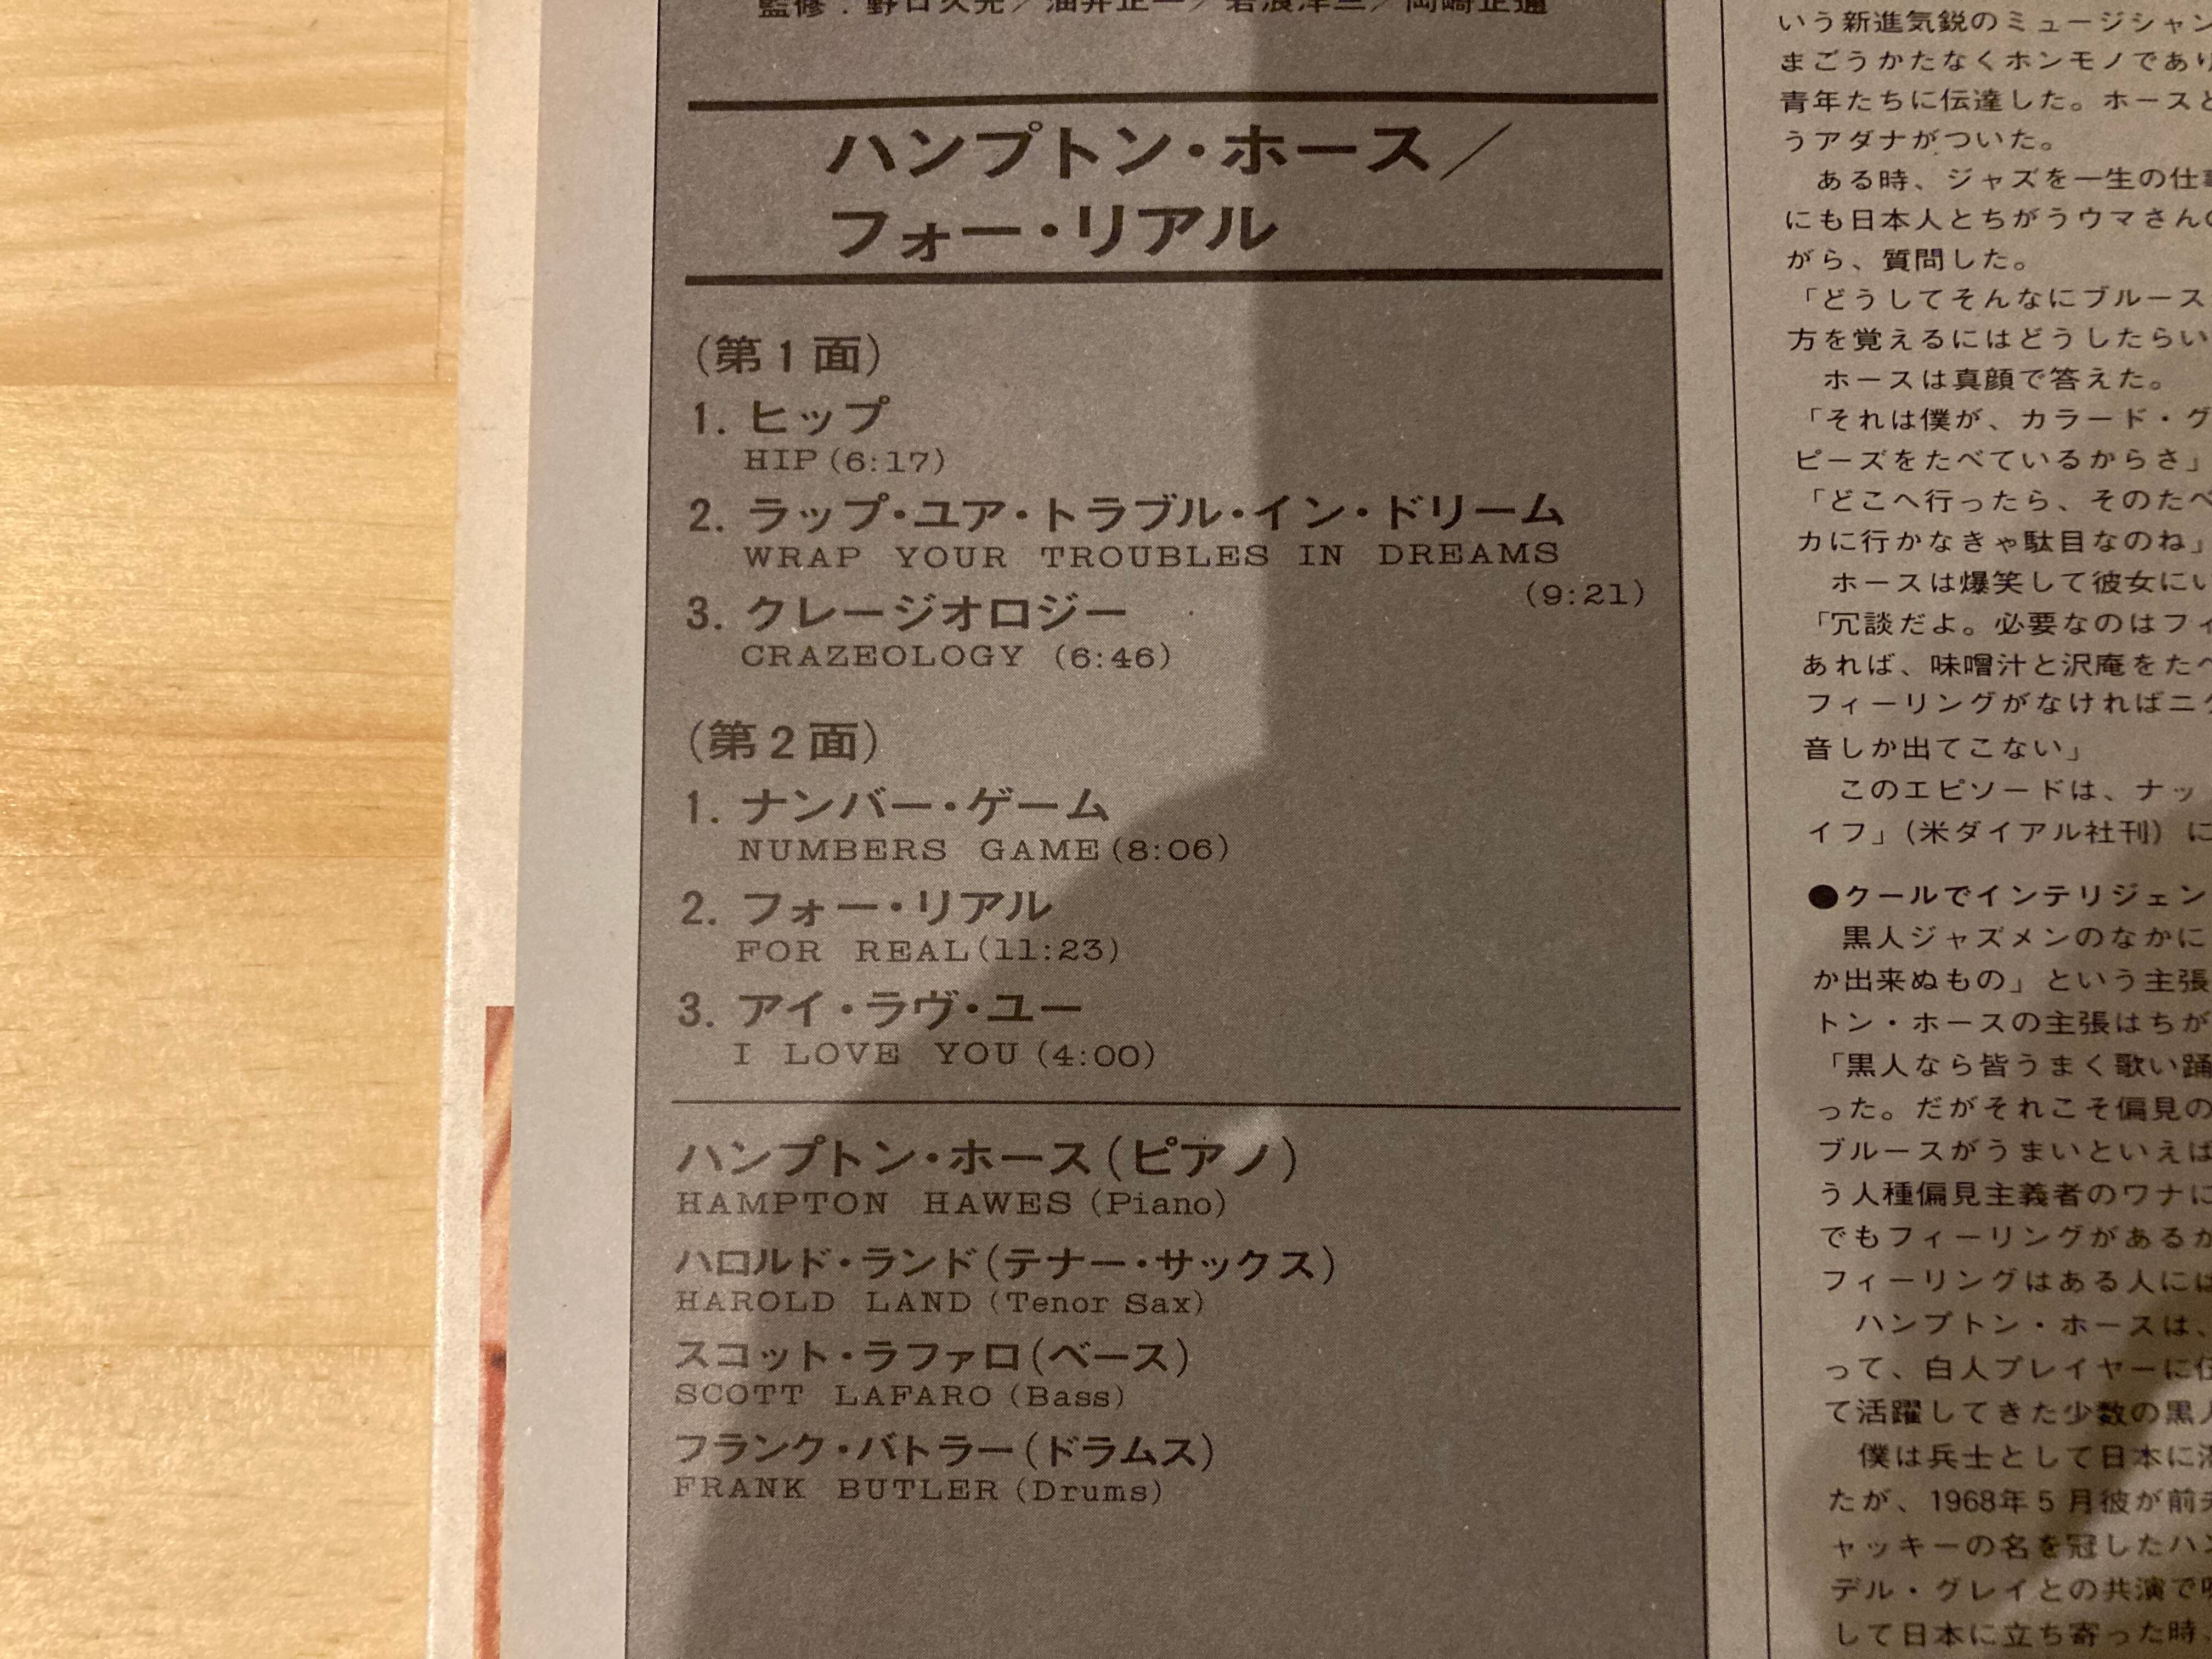 監修：野口久光／油井正一／岩浪洋三／岡崎正通
ハンプトン・ホース／
フォー・リアル
(第1面)
1. ヒップ
HIP (6:17)
2. ラップ・ユア・トラブル・イン・ドリーム
WRAP YOUR TROUBLES IN DREAMS
(9:21)
3. クレージオロジー
CRAZEOLOGY (6:46)
(第2面)
1. ナンバー・ゲーム
NUMBERS GAME (8:06)
2. フォー・リアル
FOR REAL (11:23)
3. アイ・ラヴ・ユー
I LOVE YOU (4:00)
ハンプトン・ホース(ピアノ)
HAMPTON HAWES (Piano)
ハロルド・ランド(テナー・サックス)
HAROLD LAND (Tenor Sax)
スコット・ラファロ(ベース)
SCOTT LAFARO (Bass)
フランク・バトラー(ドラムス)
FRANK BUTLER (Drums)
いう新進気鋭のミュージシャン
まごうかたなくホンモノであり
青年たちに伝達した。ホースと
うアダナがついた。
ある時、ジャズを一生の仕事
にも日本人とちがうウマさんの
がら、質問した。
「どうしてそんなにブルース
方を覚えるにはどうしたらい
ホースは真顔で答えた。
「それは僕が、カラード・グ
ピーズをたべているからさ」
「どこへ行ったら、そのたべ
カに行かなきゃ駄目なのね」
ホースは爆笑して彼女にい
「冗談だよ。必要なのはフィ
あれば、味噌汁と沢庵をたべ
フィーリングがなければニグ
音しか出てこない」
このエピソードは、ナッ
イフ」(米ダイアル社刊) に
●クールでインテリジェン
黒人ジャズメンのなかに
か出来ぬもの」という主張
トン・ホースの主張はちが
「黒人なら皆うまく歌い踊
った。だがそれこそ偏見の
ブルースがうまいといえば
う人種偏見主義者のワナに
でもフィーリングがあるか
フィーリングはある人には
ハンプトン・ホースは、
って、白人プレイヤーに伍
て活躍してきた少数の黒人
僕は兵士として日本に滞
たが、1968年5月彼が前
ャッキーの名を冠したハン
デル・グレイとの共演で
して日本に立ち寄った時、